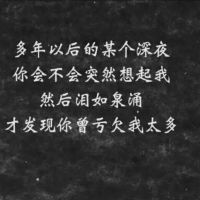 多年以后的某个深夜
你会不会突然想起我
然后泪如泉涌
才发现你曾亏欠我太多